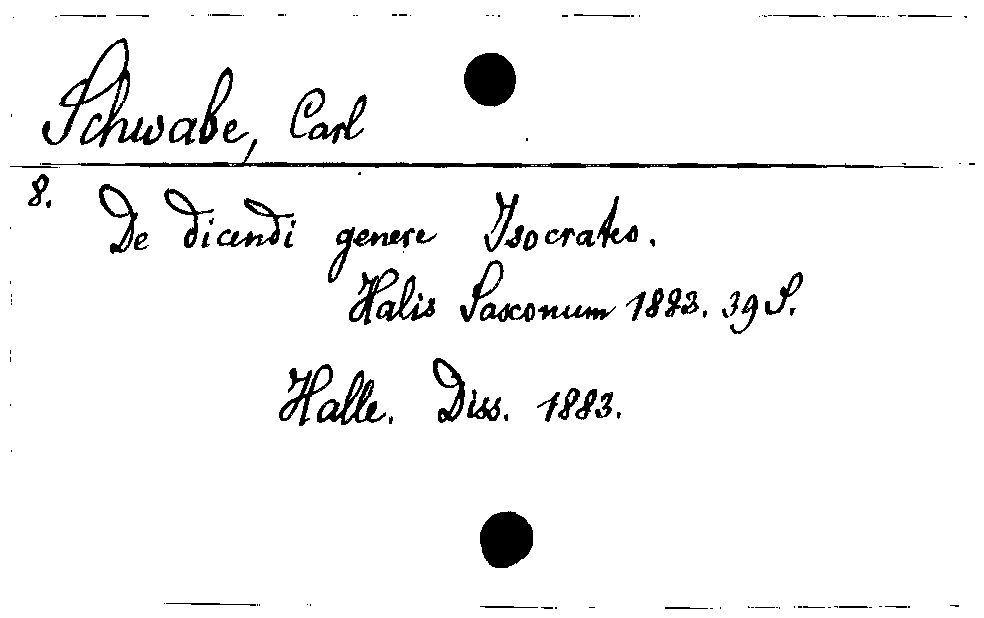 Schwabe, Carl
8. De dicendi genere Isocrateo.
Halis Saxonum 1883. 39 S.
Halle. Diss. 1883.